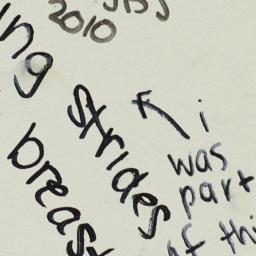 2010
ng strides
breast
i
was
part
of thi